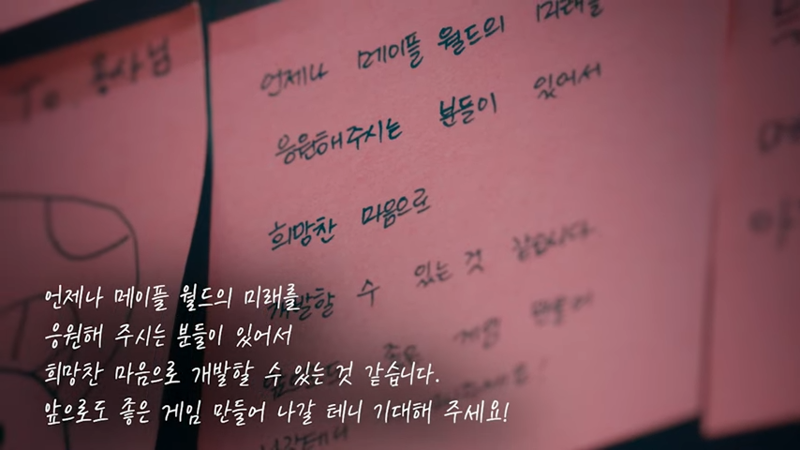 To 용사님
언제나 메이플 월드의 미래를
응원해주시는 분들이 있어서
희망찬 마음으로
개발할 수 있는 것 같습니다.
앞으로도 좋은 게임 만들어
나갈테니
언제나 메이플 월드의 미래를
응원해 주시는 분들이 있어서
희망찬 마음으로 개발할 수 있는 것 같습니다.
앞으로도 좋은 게임 만들어 나갈 테니 기대해 주세요!